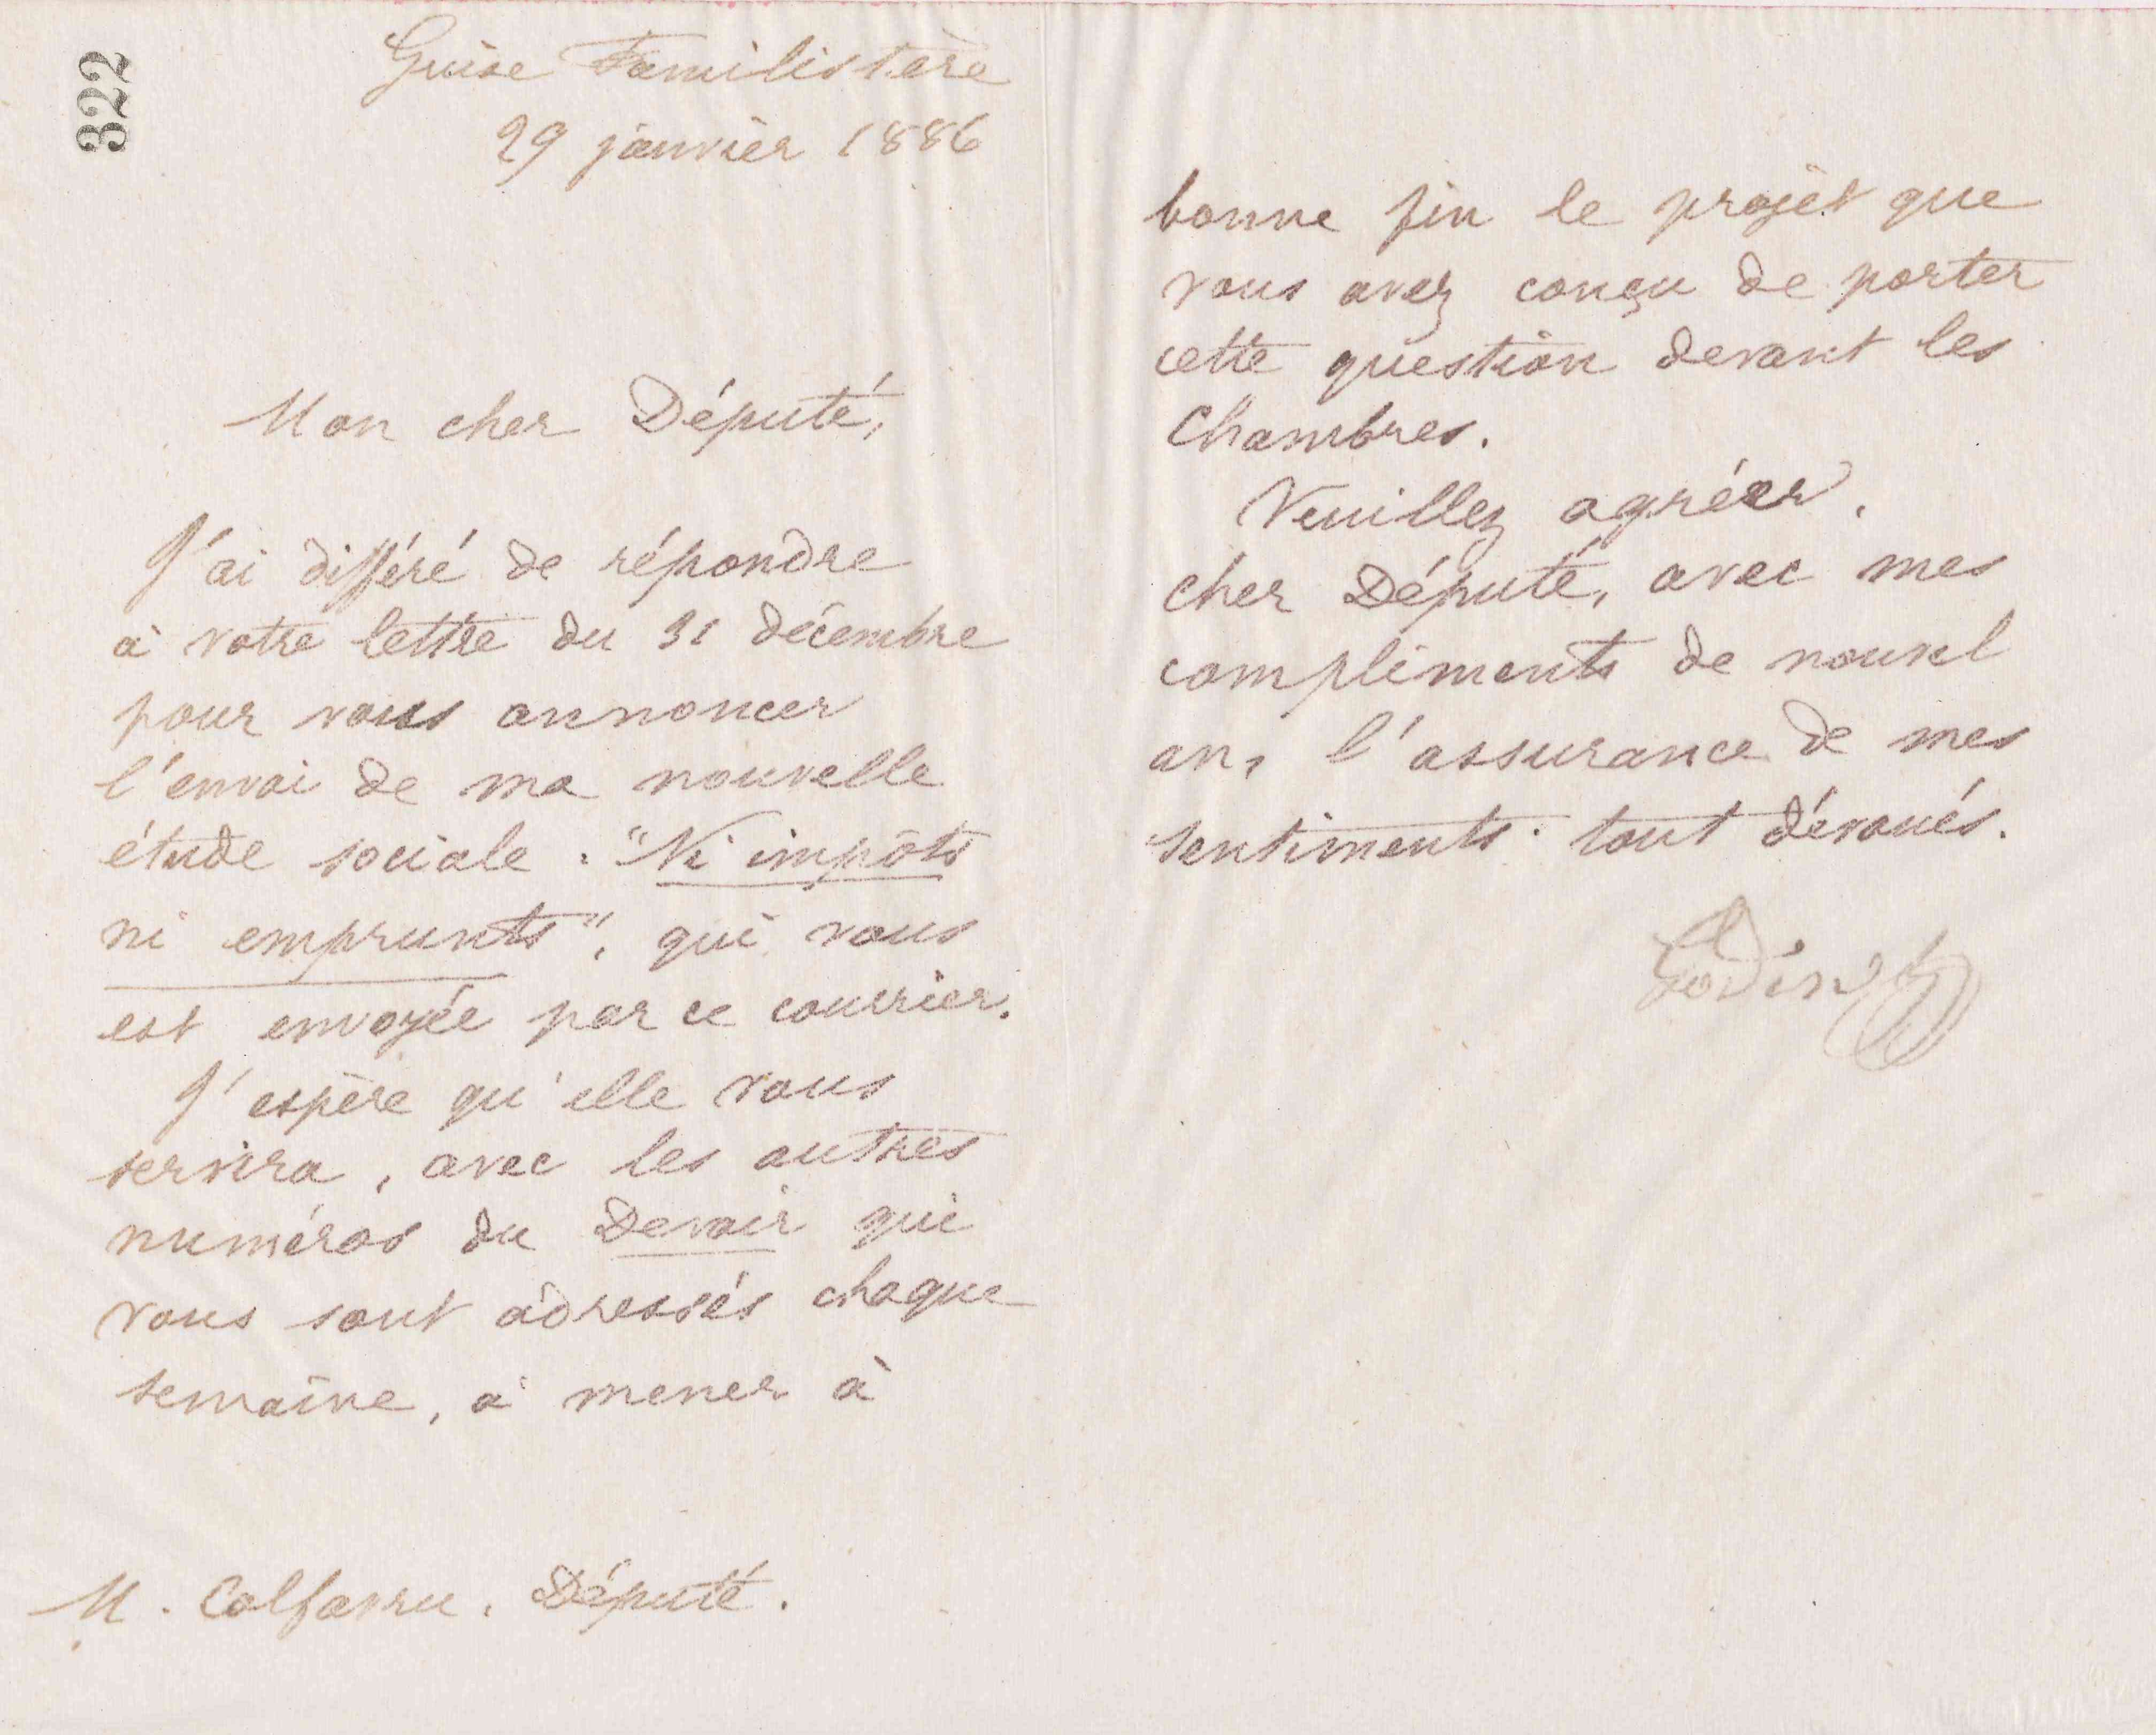 322
Guise Familistère
29 janvier 1886
Mon cher Député,
J'ai différé de répondre
à votre lettre du 31 décembre
pour vous annoncer
l'envoi de ma nouvelle
étude sociale. "Ni impôts
ni emprunts", qui vous
est envoyée par ce courrier.
J'espère qu'elle vous
servira, avec les autres
numéros du Devoir qui
vous sont adressés chaque
semaine, à mener à
M. Colfavru. Député.
bonne fin le projet que
vous avez conçu de porter
cette question devant les
Chambres.
Veuillez agréer,
cher Député, avec mes
compliments de nouvel
an, l'assurance de mes
sentiments tout dévoués.
Godin